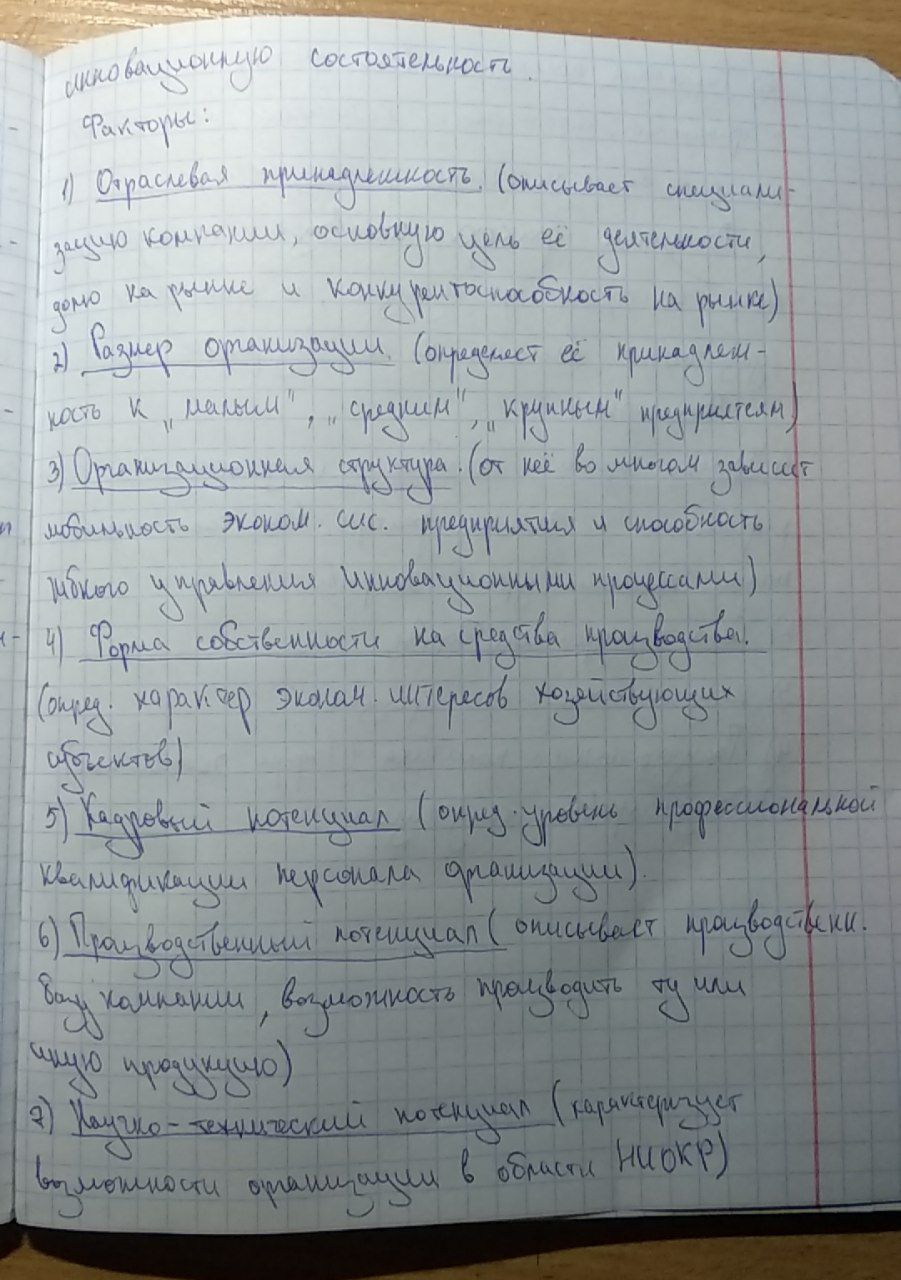 инновационную состоятельность.
Факторы:
1) Отраслевая принадлежность. (описывает специали-
зацию компании, основную цель её деятельности,
долю на рынке и конкурентоспособность на рынке)
2) Размер организации. (определяет её принадлеж-
ность к „малым", „средним", „крупным" предприятиям)
3) Организационная структура. (от неё во многом зависит
мобильность эконом. сис. предприятия и способность
гибкого управления инновационными процессами)
4) Форма собственности на средства производства.
(опред. характер эконом. интересов хозяйствующих
субъектов)
5) Кадровый потенциал (опред. уровень профессиональной
квалификации персонала организации).
6) Производственный потенциал (описывает производственн.
базу компании, возможность производить ту или
иную продукцию)
7) Научно-технический потенциал (характеризует
возможности организации в области НИОКР)